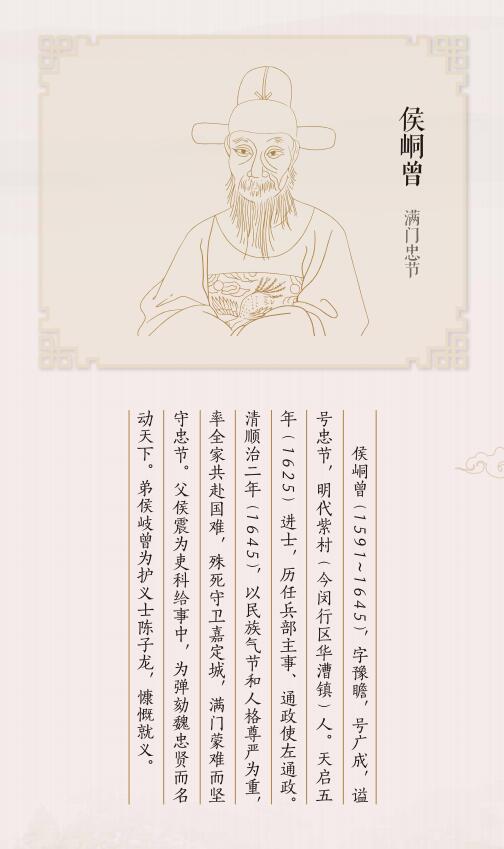 侯峒曾
满门忠节
侯峒曾（1591~1645），字豫瞻，号广成，谥
号忠节，明代紫村（今闵行区华漕镇）人。天启五
年（1625）进士，历任兵部主事、通政使左通政。
清顺治二年（1645），以民族气节和人格尊严为重，
率全家共赴国难，殊死守卫嘉定城，满门蒙难而坚
守忠节。父侯震为吏科给事中，为弹劾魏忠贤而名
动天下。弟侯岐曾为护义士陈子龙，慷慨就义。